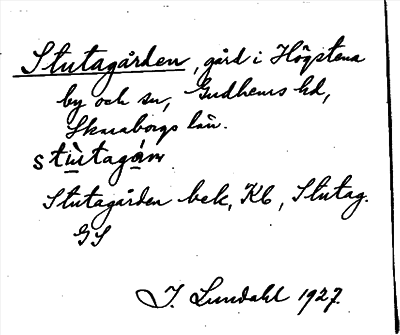 Stutagården, gård i Högstena
by och sn, Gudhems hd,
Skaraborgs län.
stùtagán
Stutagården bek, Kb, Stutag.
GS
I. Lundahl 1927.